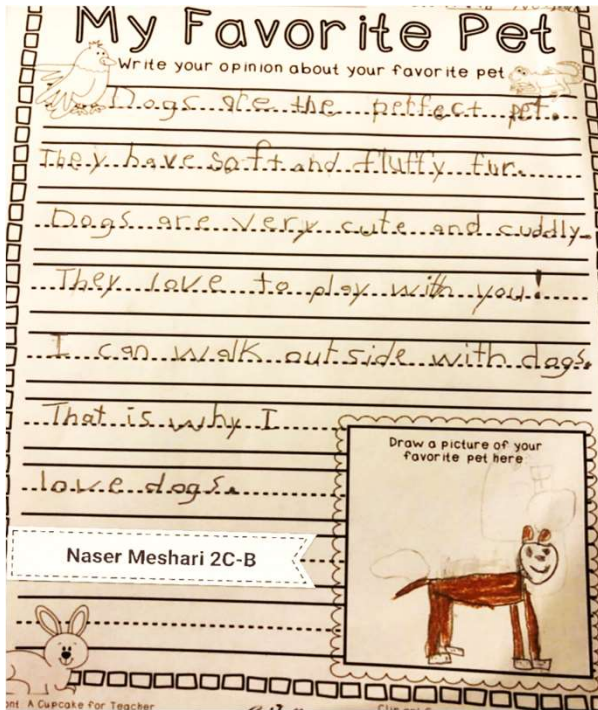 My Favorite Pet
Write your opinion about your favorite pet
Dogs are the perfect pet.
They have soft and fluffy fur.
Dogs are very cute and cuddly.
They love to play with you!
I can walk outside with dogs.
That is why I
love dogs.
Draw a picture of your
favorite pet here
Naser Meshari 2C-B
A Cupcake for Teacher